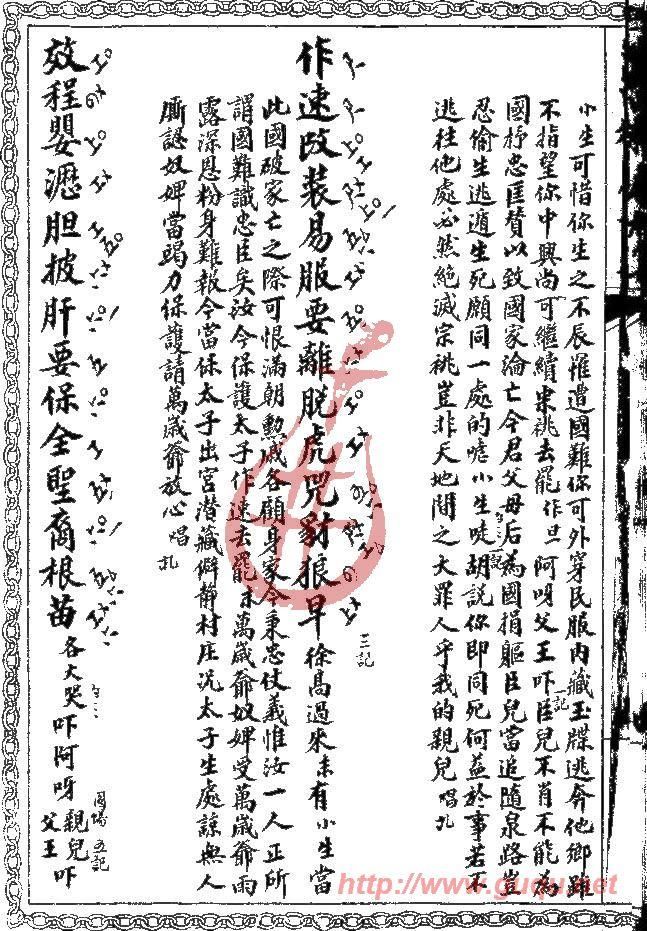 小生可惜你生之不辰罹遭國難你可外穿民服內藏玉牒逃奔他鄉雖
不指望你中興尚可繼續宗祧去罷作旦阿呀父王吓臣兒不肖不能為
一記
國抒忠匡贊以致國家淪亡今君父母后為國捐軀臣兒當追隨泉路豈
忍偷生逃遁生死願同一處的嘘小生唗胡説你即同死何益於事若不
逃往他處必然絕滅宗祧豈非天地間之大罪人乎我的親兒唱
作速改裝易服要離脫虎咒豺狼早徐髙過來末有小生當
三記
此國破家亡之際可恨滿朝勳戚各顧身家今秉忠仗義惟汝一人正所
謂國難識忠臣矣汝今保護太子作速去罷末萬歲爺奴婢受萬歲爺雨
露深恩粉身難報今當保太子出宮潛藏僻静村庄況太子生處諒無人
廝認奴婢當竭力保護請萬歲爺放心唱
效程嬰瀝胆披肝要保全聖裔根苗各大哭吓阿呀親兒吓
父王
五記
http://www.guqu.net